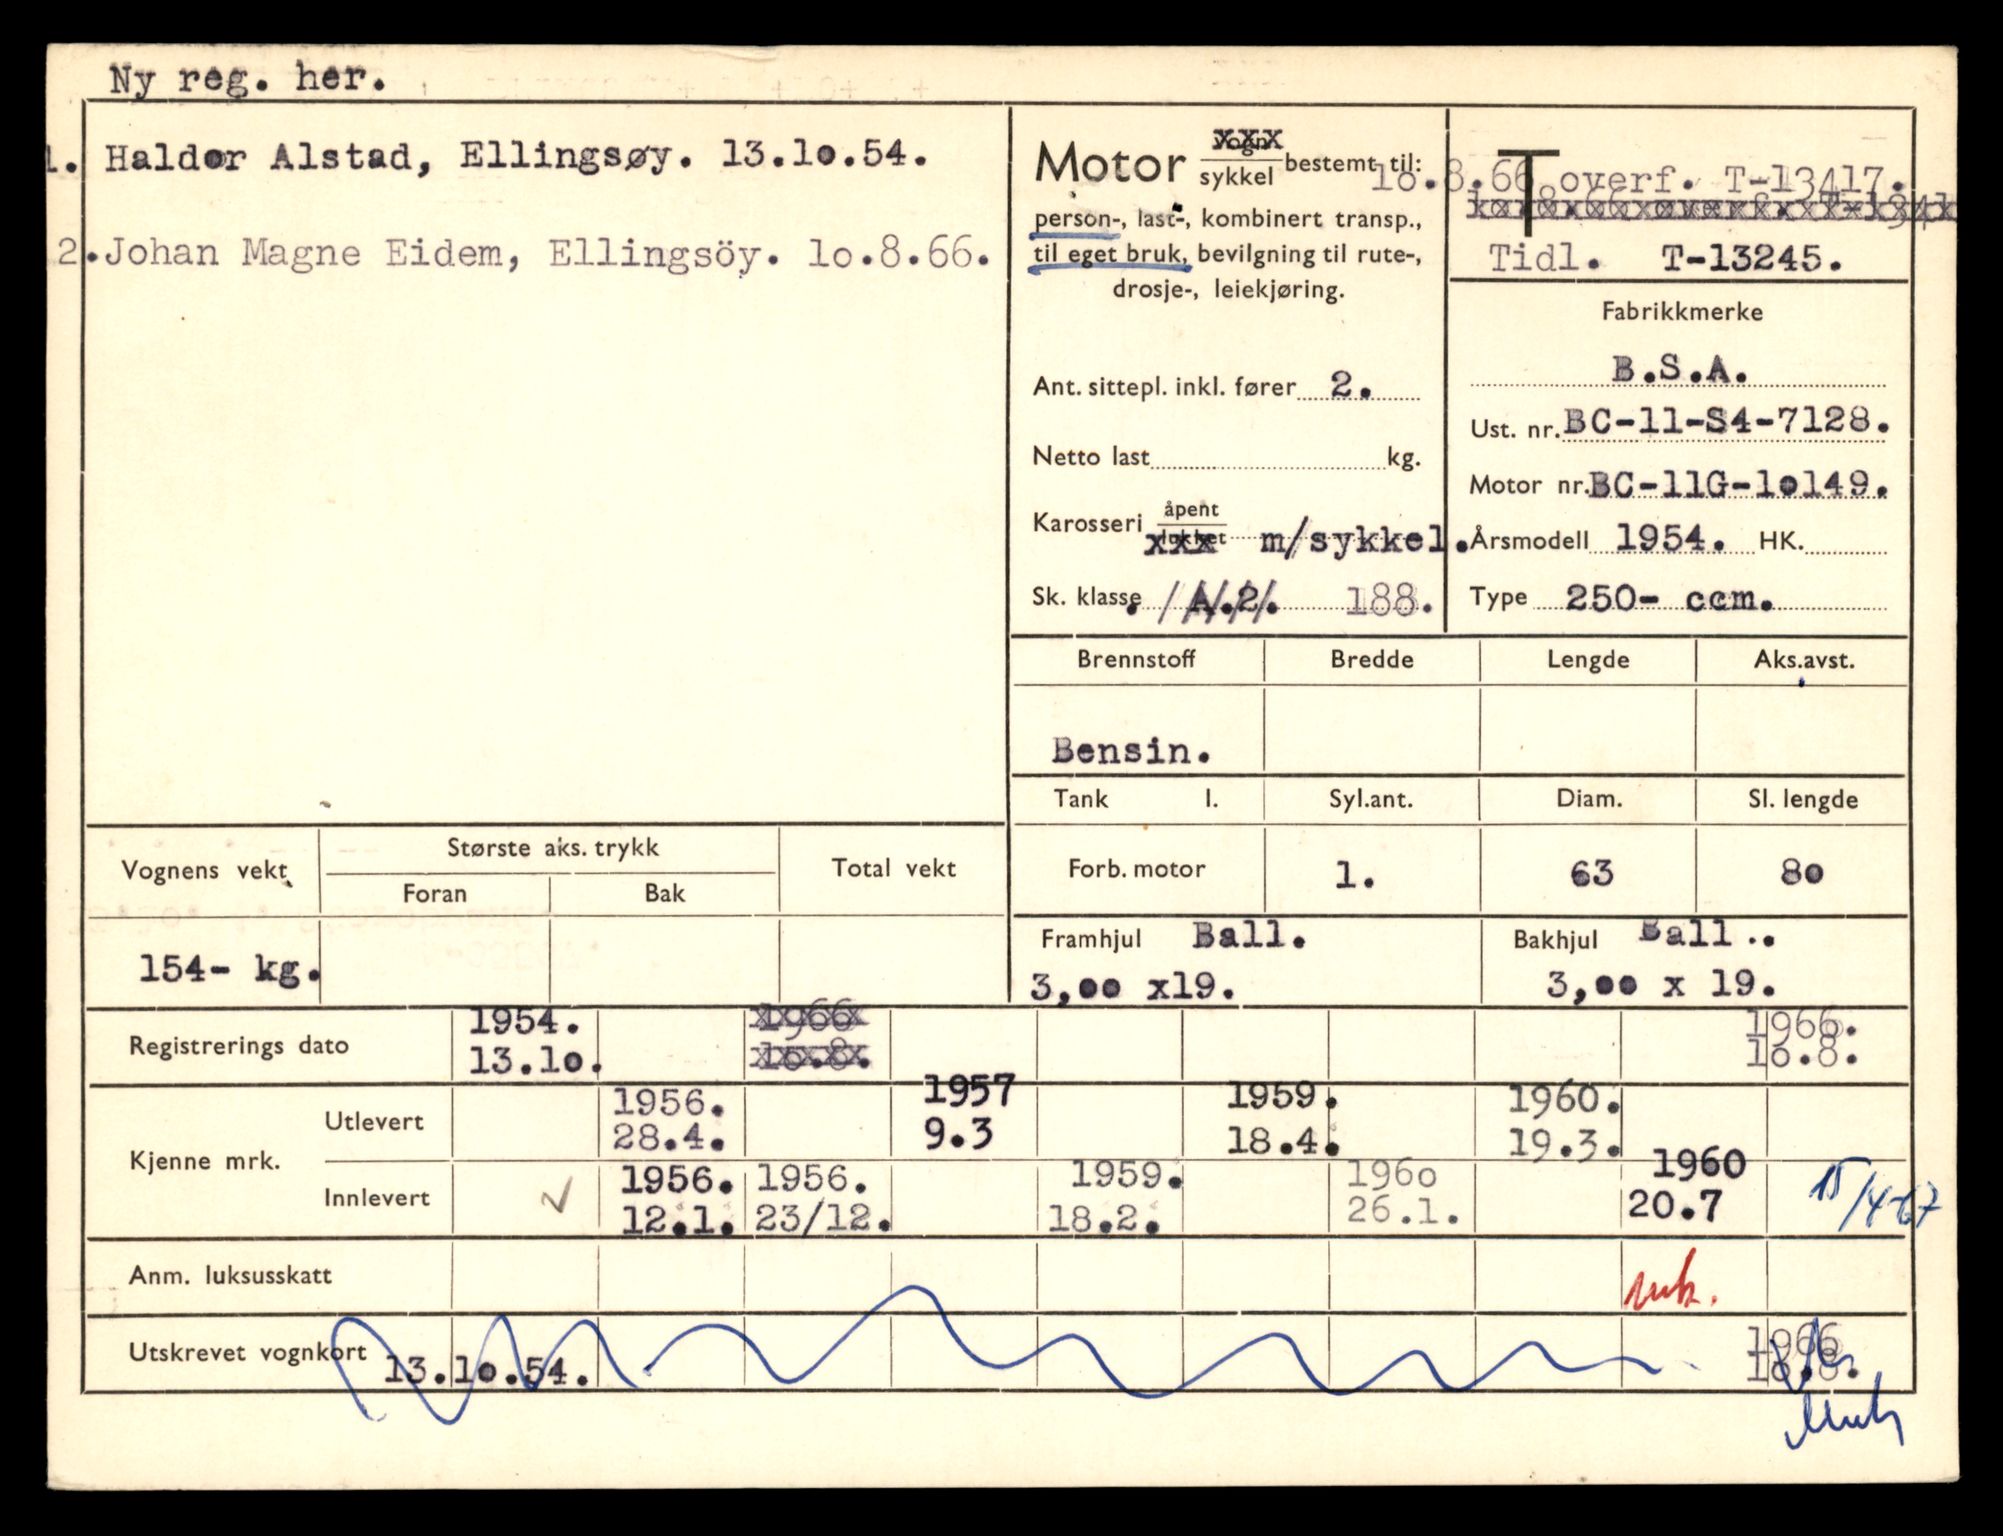 Ny reg. her.
1. Haldor Alstad, Ellingsøy. 13.10.54.
2. Johan Magne Eidem, Ellingsöy. 10.8.66.
Motor vogn
sykkel bestemt til:
person-, last-, kombinert transp.,
til eget bruk, bevilgning til rute-,
drosje-, leiekjøring.
Ant. sittepl. inkl. fører 2.
Netto last kg.
Karosseri åpent
lukket m/sykkel.
Sk. klasse A.2. 188.
T
10.8.66 overf. T-13417.
Tidl. T-13245.
Fabrikkmerke
B.S.A.
Ust. nr. BC-11-S4-7128.
Motor nr. BC-11G-10149.
Årsmodell 1954. HK.
Type 250- ccm.
Brennstoff Bredde Lengde Aks.avst.
Bensin.
Tank l. Syl.ant. Diam. Sl. lengde
Forb. motor 1. 63 80
Framhjul Ball. Bakhjul Ball..
3,00 x19. 3,00 x 19.
Vognens vekt Største aks. trykk Total vekt
Foran Bak
154- kg.
Registrerings dato 1954. 1966 1966.
13.10. 10.8. 10.8.
Kjenne mrk.
Utlevert 1956. 1957 1959. 1960.
28.4. 9.3 18.4. 19.3.
Innlevert 1956. 1956. 1959. 1960 1960
12.1. 23/12. 18.2. 26.1. 20.7 15/4-67
Anm. luksusskatt
Utskrevet vognkort 13.10.54. 1966
10.8.